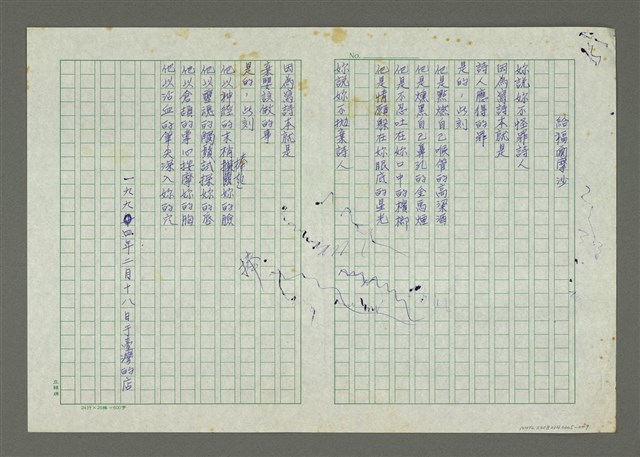 No.
給福爾摩沙
妳說妳不怪罪詩人
因為寫詩本就是
詩人應得的罪
是的，此刻
他是點燃自己喉管的高粱酒
他是燻黑自己鼻孔的金馬煙
他是不忍吐在妳口中的檳榔
他是情願躲在妳眼底的星光
妳說妳不拋棄詩人
因為寫詩本就是
棄嬰該做的事
是的，此刻
他以神經的末梢捧住妳的臉
他以靈魂的觸鬚試探妳的唇
他以倉頡的掌心按摩妳的胸
他以沾血的筆尖深入妳的穴
一九九四年二月十八日于臺灣的店